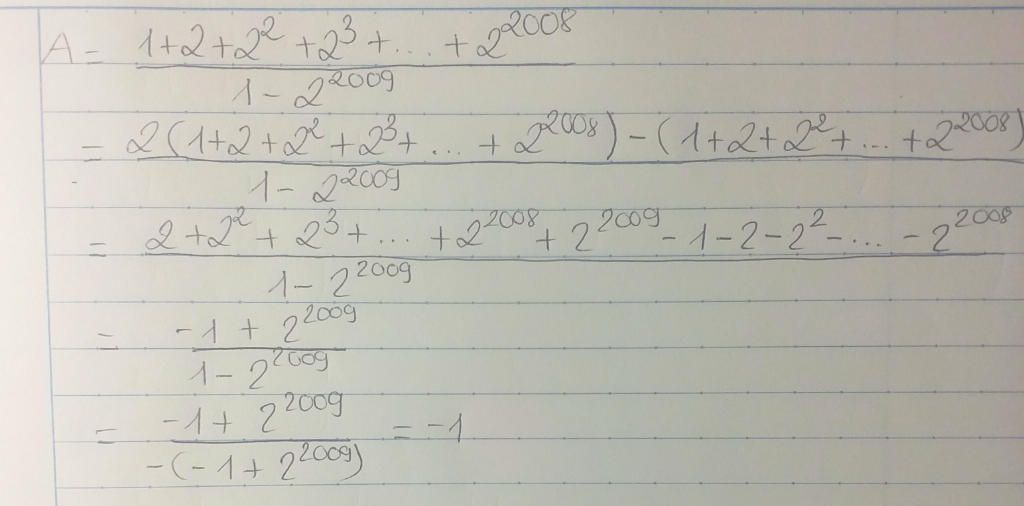 A = \frac{1+2+2^2+2^3+...+2^{2008}}{1-2^{2009}}
= \frac{2(1+2+2^2+2^3+...+2^{2008})-(1+2+2^2+...+2^{2008})}{1-2^{2009}}
= \frac{2+2^2+2^3+...+2^{2008}+2^{2009}-1-2-2^2-...-2^{2008}}{1-2^{2009}}
= \frac{-1+2^{2009}}{1-2^{2009}}
= \frac{-1+2^{2009}}{-(-1+2^{2009})} = -1